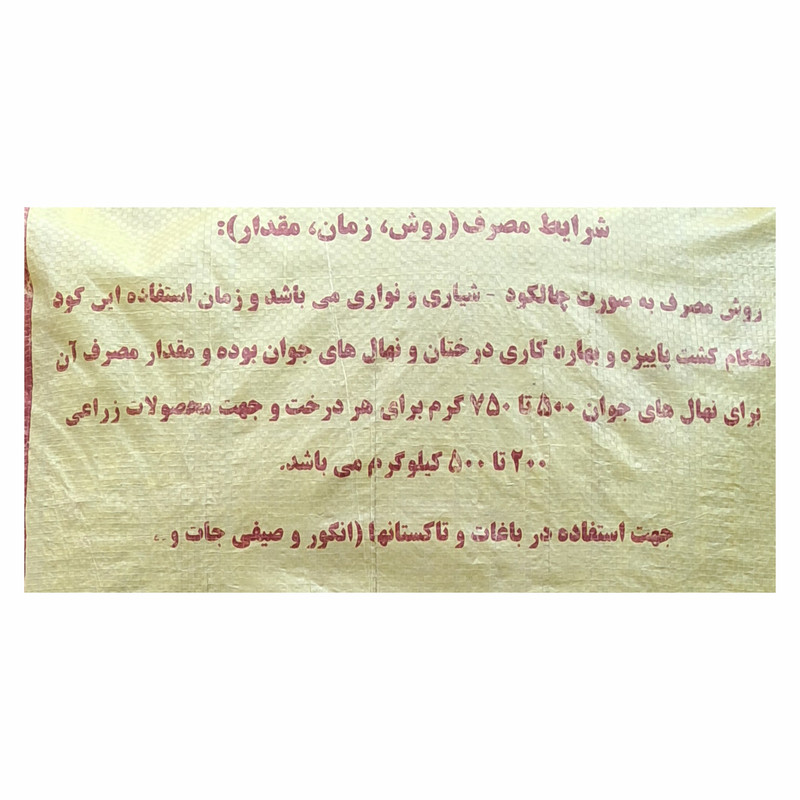 شرایط مصرف(روش، زمان، مقدار):
روش مصرف به صورت چالکود - شیاری و نواری می باشد و زمان استفاده این کود
هنگام کشت پاییزه و بهاره کاری درختان و نهال های جوان بوده و مقدار مصرف آن
برای نهال های جوان ۵۰۰ تا ۷۵۰ گرم برای هر درخت و جهت محصولات زراعی
۲۰۰ تا ۵۰۰ کیلوگرم می باشد.
جهت استفاده در باغات و تاکستانها (انگور و صیفی جات و..